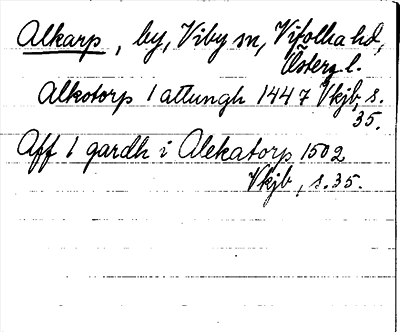 Alkarp, by, Viby sn, Vifolka hd,
Österg. l.
Alkotorp 1 attungh 1447 Vkjb, s.
35.
Aff 1 gardh i Alekatorp 1502
Vkjb, s. 35.